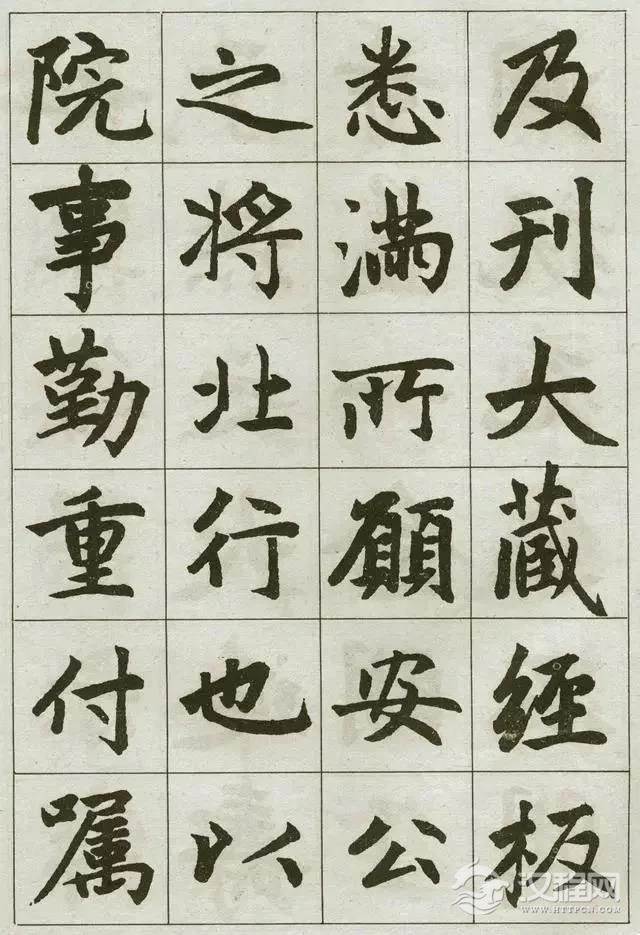 及刊大藏經板
悉滿所願安公
之將北行也以
院事勤重付嘱
汉程网
WWW.HTTPCN.COM